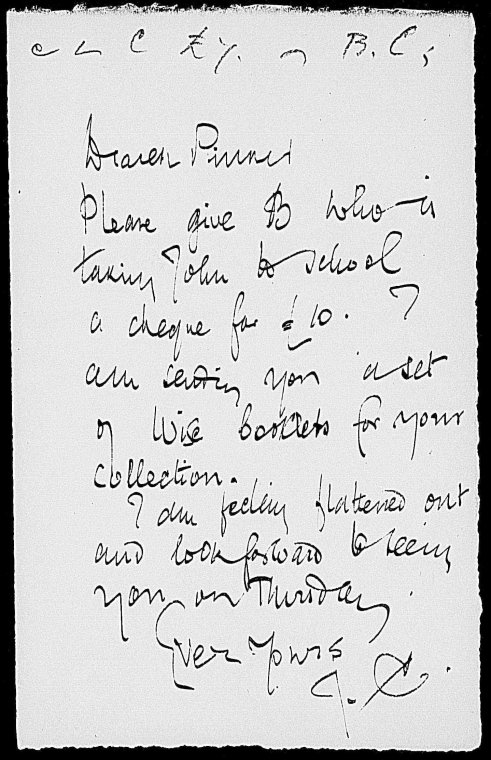 B.C.
Dearest Pinner
Please give B who is
taking John to school
a cheque for £10. I
am sending you a set
of Wise booklets for your
collection.
I am feeling flattened out
and look forward to seeing
you on Thursday.
Ever Yours
J.